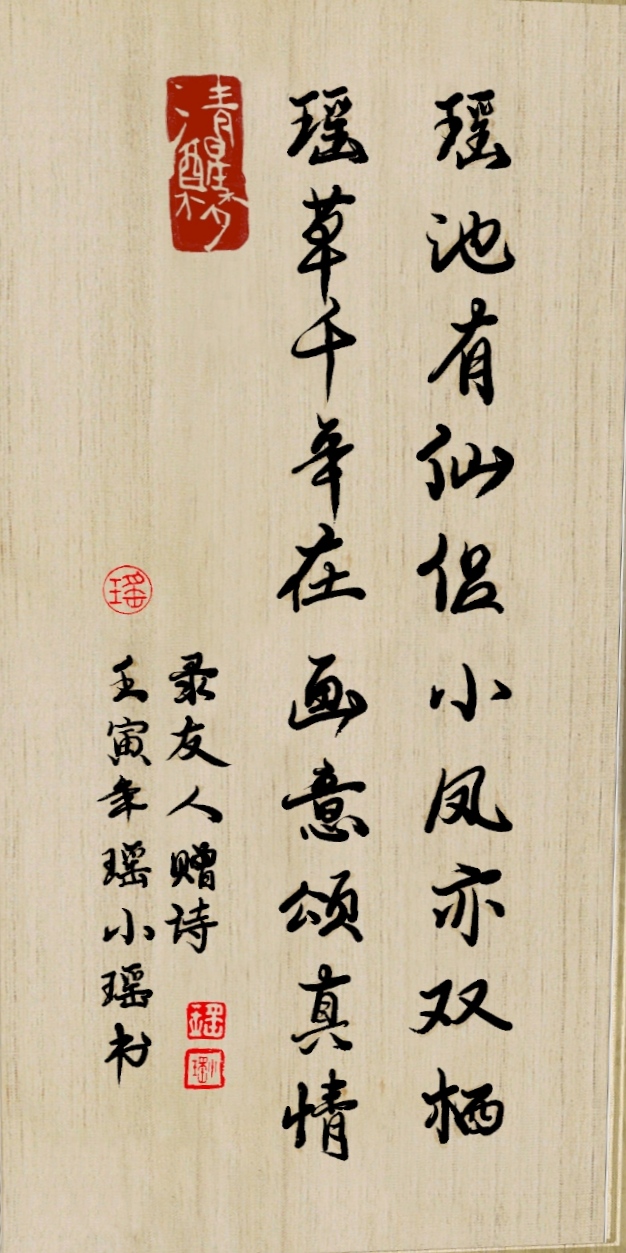 瑶池有仙侣小凤亦双栖
瑶草千年在画意颂真情
清醒梦
录友人赠诗
壬寅年瑶小瑶书
瑶